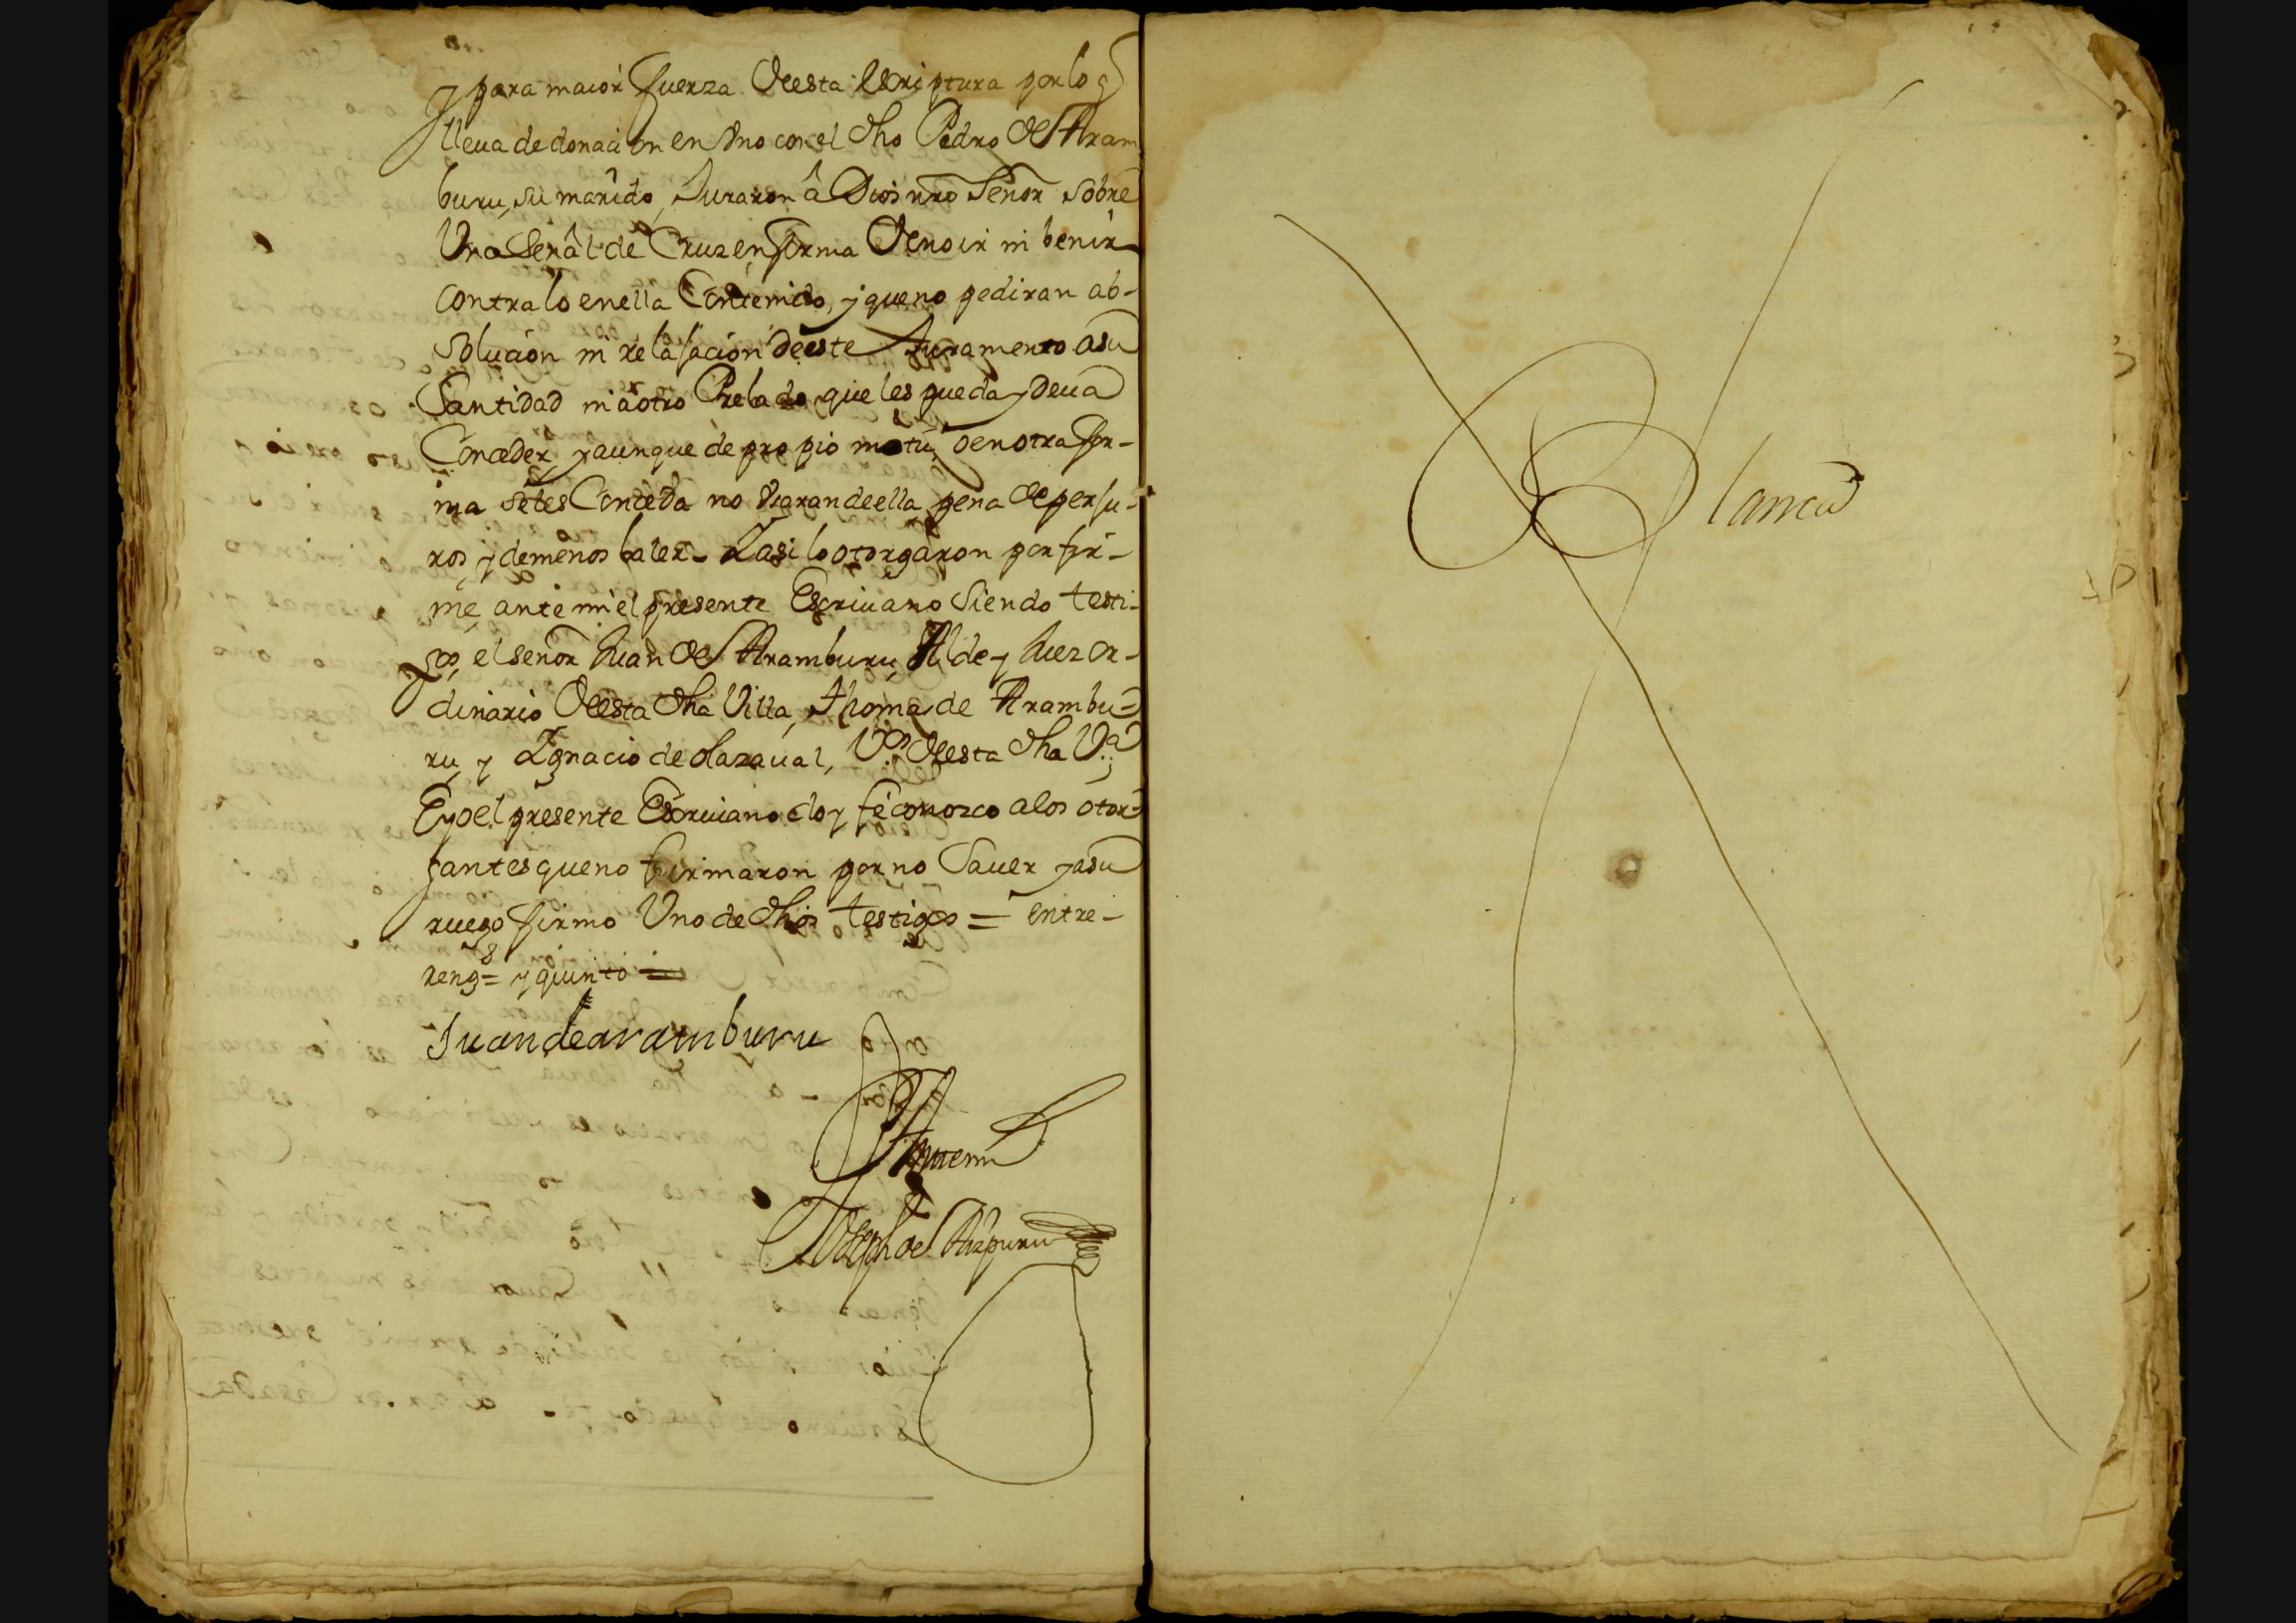 y para maior fuerza de esta escriptura por lo q
lleua de donacion en vno con el dho Pedro de Aram
buru, su marido, Juraron â Dios nro Señor sobre
Una señal de Cruz en forma de no ir ni benir
contra lo en ella Contenido, y que no pediran ab-
solucion ni relajacion de este Juramento a su
Santidad ni a otro Prelado que les pueda y deua
Conceder, y aunque de propio motu, o en otra for-
ma se les Conceda no vsaran de ella pena de perju-
ros, y de menos baler - Y asi lo otorgaron por fir-
me, ante mi el presente Escriuano siendo testi-
gos, el señor Juan de Aramburu, Alde y Juez or-
dinario de esta dha Villa, Thomas de Arambu-
ru, y Ygnacio de Olazaual, Vos de esta dha Va;
E yo el presente Escriuano doy fe conozco a los otor-
gantes que no firmaron por no Sauer y a su
ruego firmo Uno de dhos testigos = entre-
rengs = y quinto =
Juan de aramburu
Ante mi
Joseph de Aizpuru
Blanca